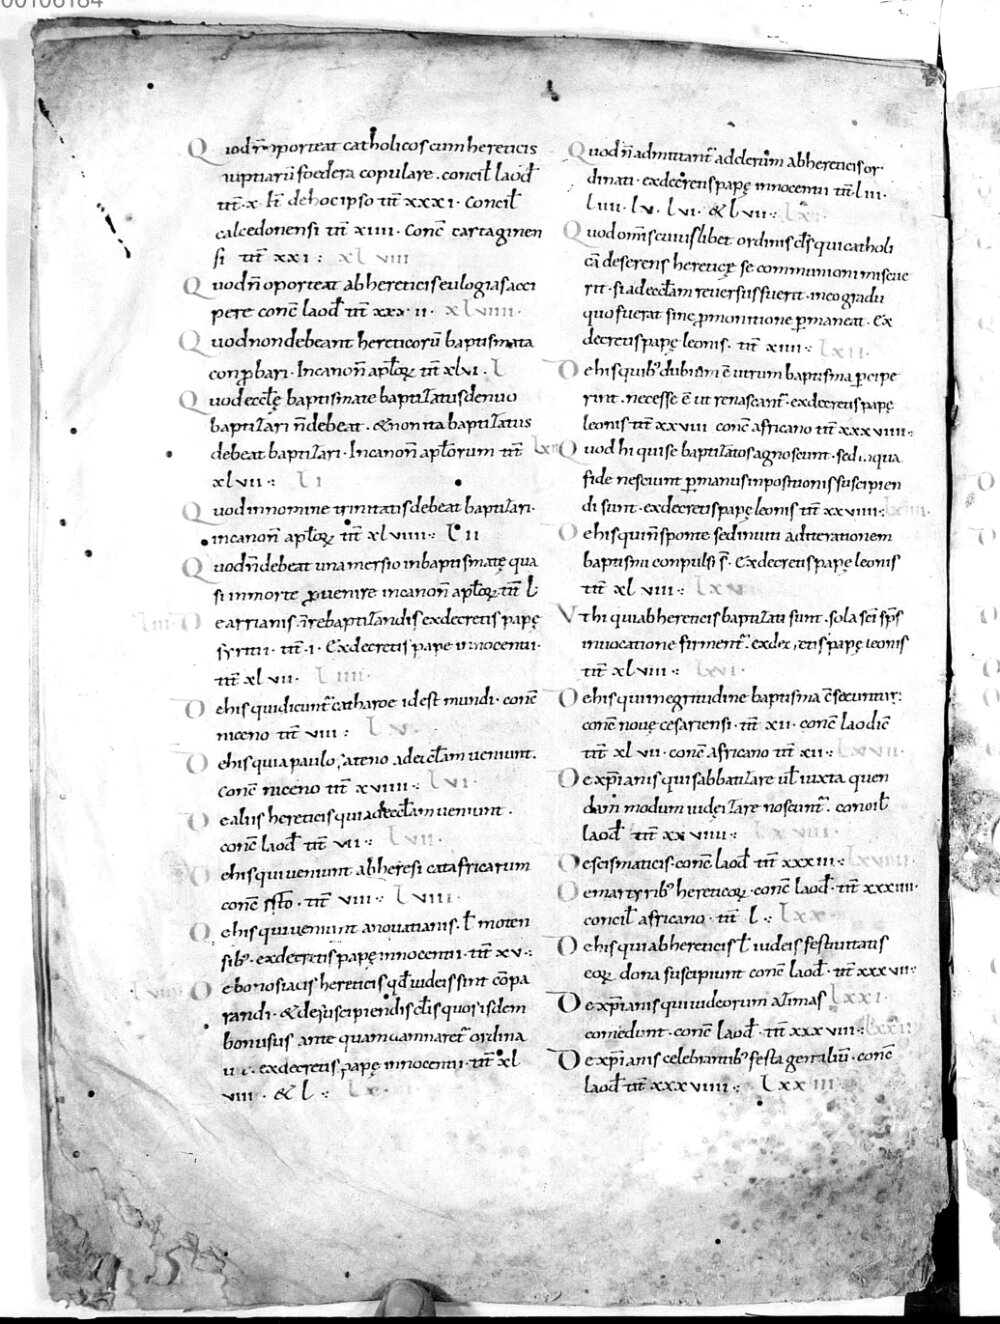 00106184
Quod n̄ oporteat catholicos cum hereticis
nuptiarū foedera copulare. concil̄ laod̄
tit̄. x. It̄ de hoc ipso tit̄ xxxi. Concil̄
calcedonensi tit̄ xiiii. Conc̄ cartaginen
si tit̄ xxi : xlviii
Quod n̄ oporteat ab hereticis eulogias acci
pere conc̄ laod̄ tit̄ xxxii. xlviiii.
Quod non debeant hereticorū baptismata
conꝓbari. In canon̄ apl̄oꝝ tit̄ xlvi. l
Quod eccl̄ę baptismate baptizatus denuo
baptizari n̄ debeat. & non ita baptizatus
debeat baptizari. In canon̄ apl̄orum tit̄
xlvii : li
Quod in nomine trinitatis debeat baptizari.
in canon̄ apl̄oꝝ tit̄ xlviiii : lii
Quod n̄ debeat una mersio in baptismate qua
si in morte ꝓuenire in canon̄ apl̄oꝝ tit̄ l
liii. De arrianis n̄ rebaptizandis ex decretis papę
syrici. tit̄. i. Ex decretis papę innocenti.
tit̄ xlvii. liiii.
De his qui dicunt̄ catharoe id est mundi. conc̄
niceno tit̄ viii : lv.
De his qui a paulo sateno ad eccl̄am ueniunt.
conc̄ niceno tit̄ xviiii : lvi.
De aliis hereticis qui ad eccl̄am ueniunt.
conc̄ laod̄ tit̄ vii : lvii.
De his qui ueniunt ab heresi catafricarum
conc̄ ss̄to. tit̄ viii : lviii.
De his qui ueniunt a nouatianis. l̄ monten
sib;. ex decretis papę innocenti. tit̄ xv :
lviiii De bonosiacis hereticis qd̄ iudeis sint cōpa
randi. & de suscipiendis cl̄is quos isdem
bonosus ante quam damnaret̄ ordina
uit. ex decretis papę innocenti. tit̄ xl
viii. & l : lx.
Quod n̄ admittant̄ ad clerum ab hereticis or
dinati. ex decretis papę innocenti tit̄ liii.
liiii. lv. lvi. & lvii : lxi
Quod omnis cuiuslibet ordinis cl̄s qui catholi
cā deserens hereticę se communioni miscue
rit. si ad eccl̄am reuersus fuerit. in eo gradu
quo fuerat sine ꝓmotione ꝑmaneat. Ex
decretis papę leonis. tit̄ xiiii : lxii.
De his quib; dubium ē utrum baptisma ꝑcipe
rint. necesse ē ut renascant̄. ex decretis papę
leonis tit̄ xxviii conc̄ africano tit̄ xxxviiii :
lxiii Quod hi qui se baptizatos agnoscunt. sed in qua
fide nesciunt ꝑ manus inpositionis suscipien
di sunt. ex decretis papę leonis tit̄ xxviiii : lxiiii.
De his qui n̄ sponte sed inuiti ad iterationem
baptismi conpulsi s̄. Ex decretis papę leonis
tit̄ xlviii : lxv
Vt hi qui ab hereticis baptizati sunt. sola sc̄i sps̄
inuocatione firment̄. ex decretis papę leonis
tit̄ xlviii : lxvi.
De his qui in egritudine baptisma c̄secuntur :
conc̄ nouę cesariensi. tit̄ xii. conc̄ laodic̄
tit̄ xlvii. conc̄ africano tit̄ xii : lxvii.
De xp̄ianis qui sabbatizare ul̄ iuxta quen
dam modum iudeizare noscunt̄. concil̄
laod̄ tit̄ xxviiii : lxviii.
De scismaticis. conc̄ laod̄ tit̄ xxxiii : lxviiii.
De martyrib; hereticoꝝ. conc̄ laod̄. tit̄ xxxiiii.
concil̄ africano. tit̄ l : lxx
De his qui ab hereticis l̄ iudeis festiuitatis
eoꝝ dona suscipiunt conc̄ laod̄. tit̄ xxxvii :
De xp̄ianis qui iudeorum azimas lxxi.
comedunt. conc̄ laod̄. tit̄ xxxviii : lxxii
De xp̄ianis celebrantib; festa gentiliū. conc̄
laod̄ tit̄ xxxviiii : lxxiii